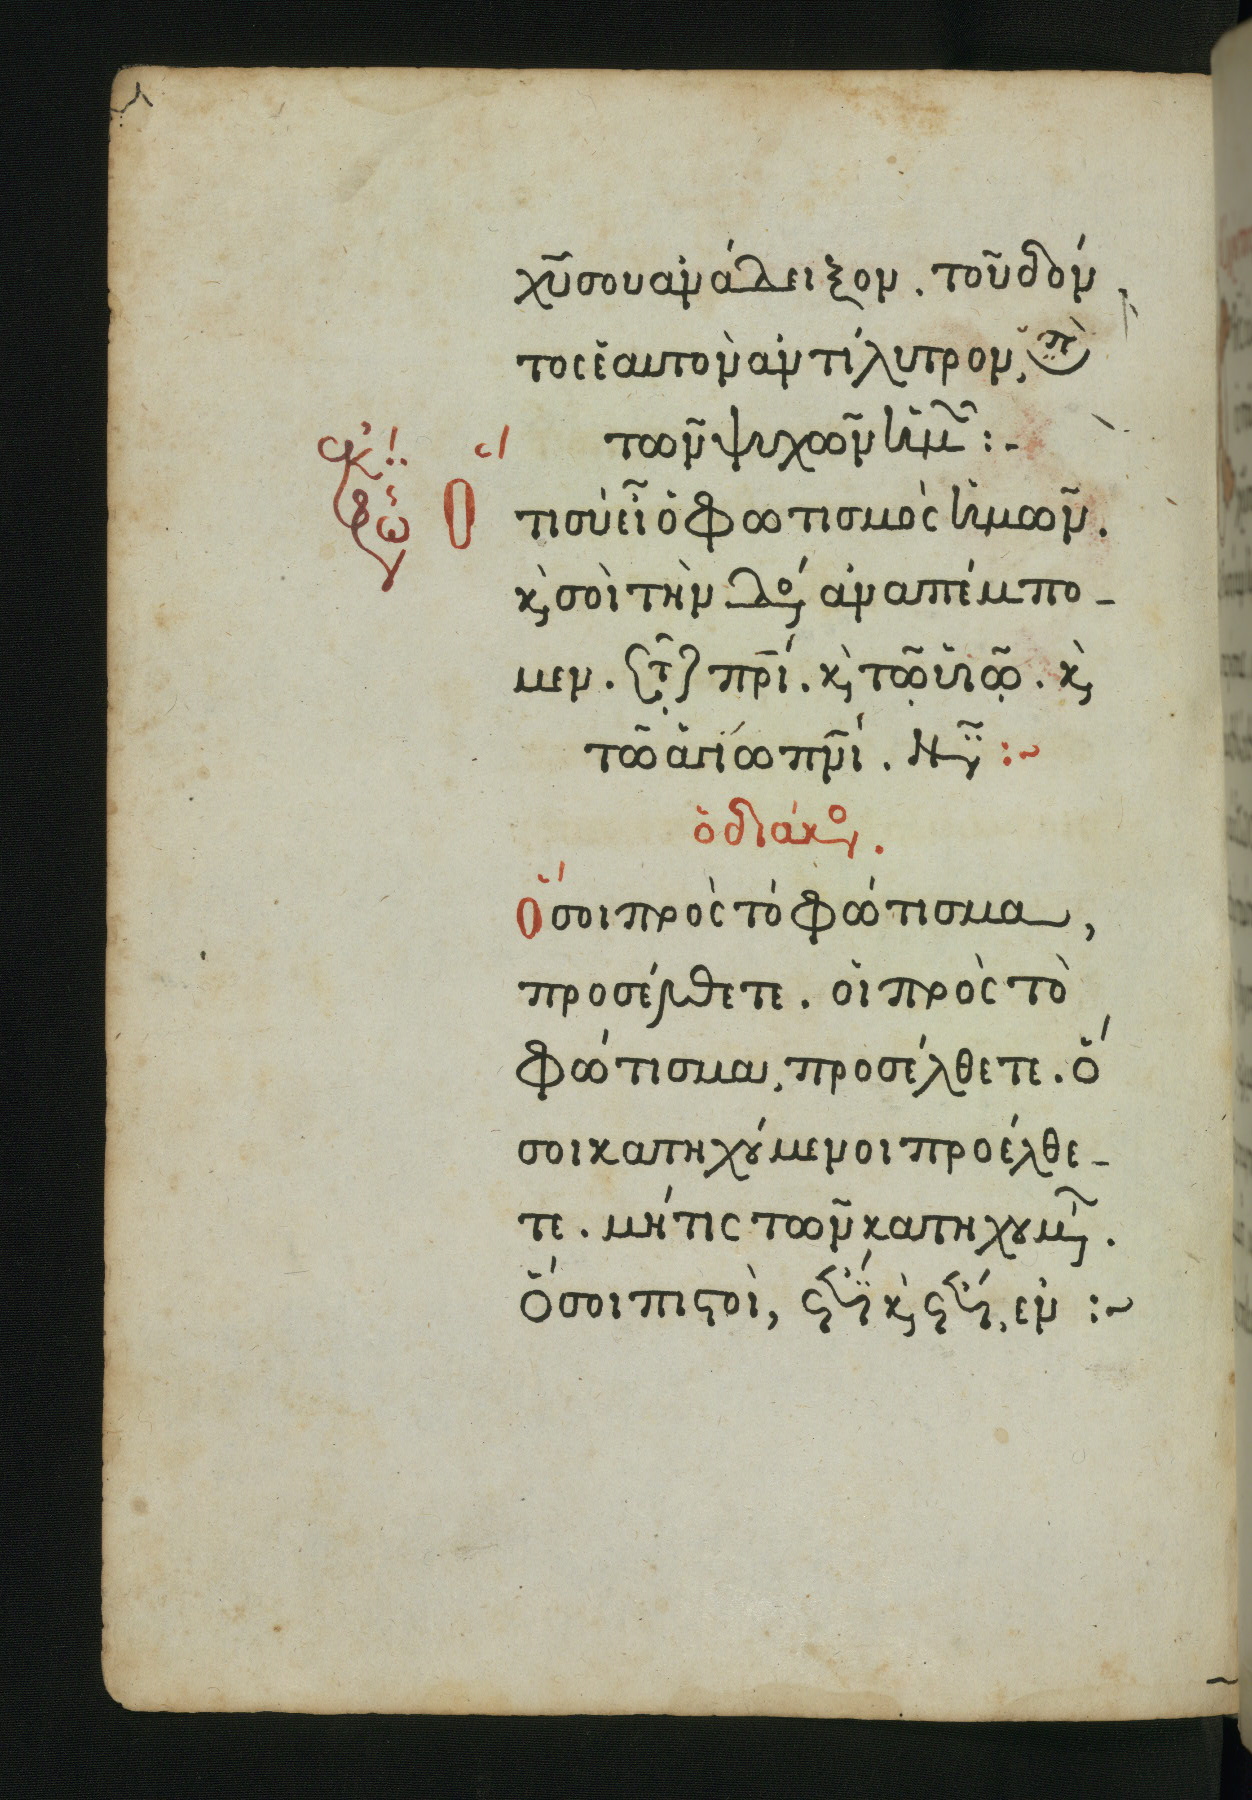 χῦ σου ἀνάδειξον. τοῦ δόν
τος ἑαυτὸν ἀντίλυτρον, ὑπὲ
τῶν ψυχῶν ἡμῶν :-
Ὅτι σὺ εἶ ὁ φωτισμὸς ἡμῶν.
κ̀ σοὶ τὴν δόξαν ἀναπέμπο-
μεν. τῷ πρί. κ̀ τῷ υἱῷ. κ̀
τῶ ἁγίω πνι. νῦν :~
ὁ διάκον.
Ὅσοι πρὸς τὸ φώτισμα,
προσέλθετε. οἱ πρὸς τὸ
φώτισμα, προσέλθετε. ὅ
σοι κατηχούμενοι προέλθε-
τε. μήτις τῶν κατηχουμεν.
Ὅσοι πιστοὶ, ἔτι κ̀ ἔτι, ἐν :~